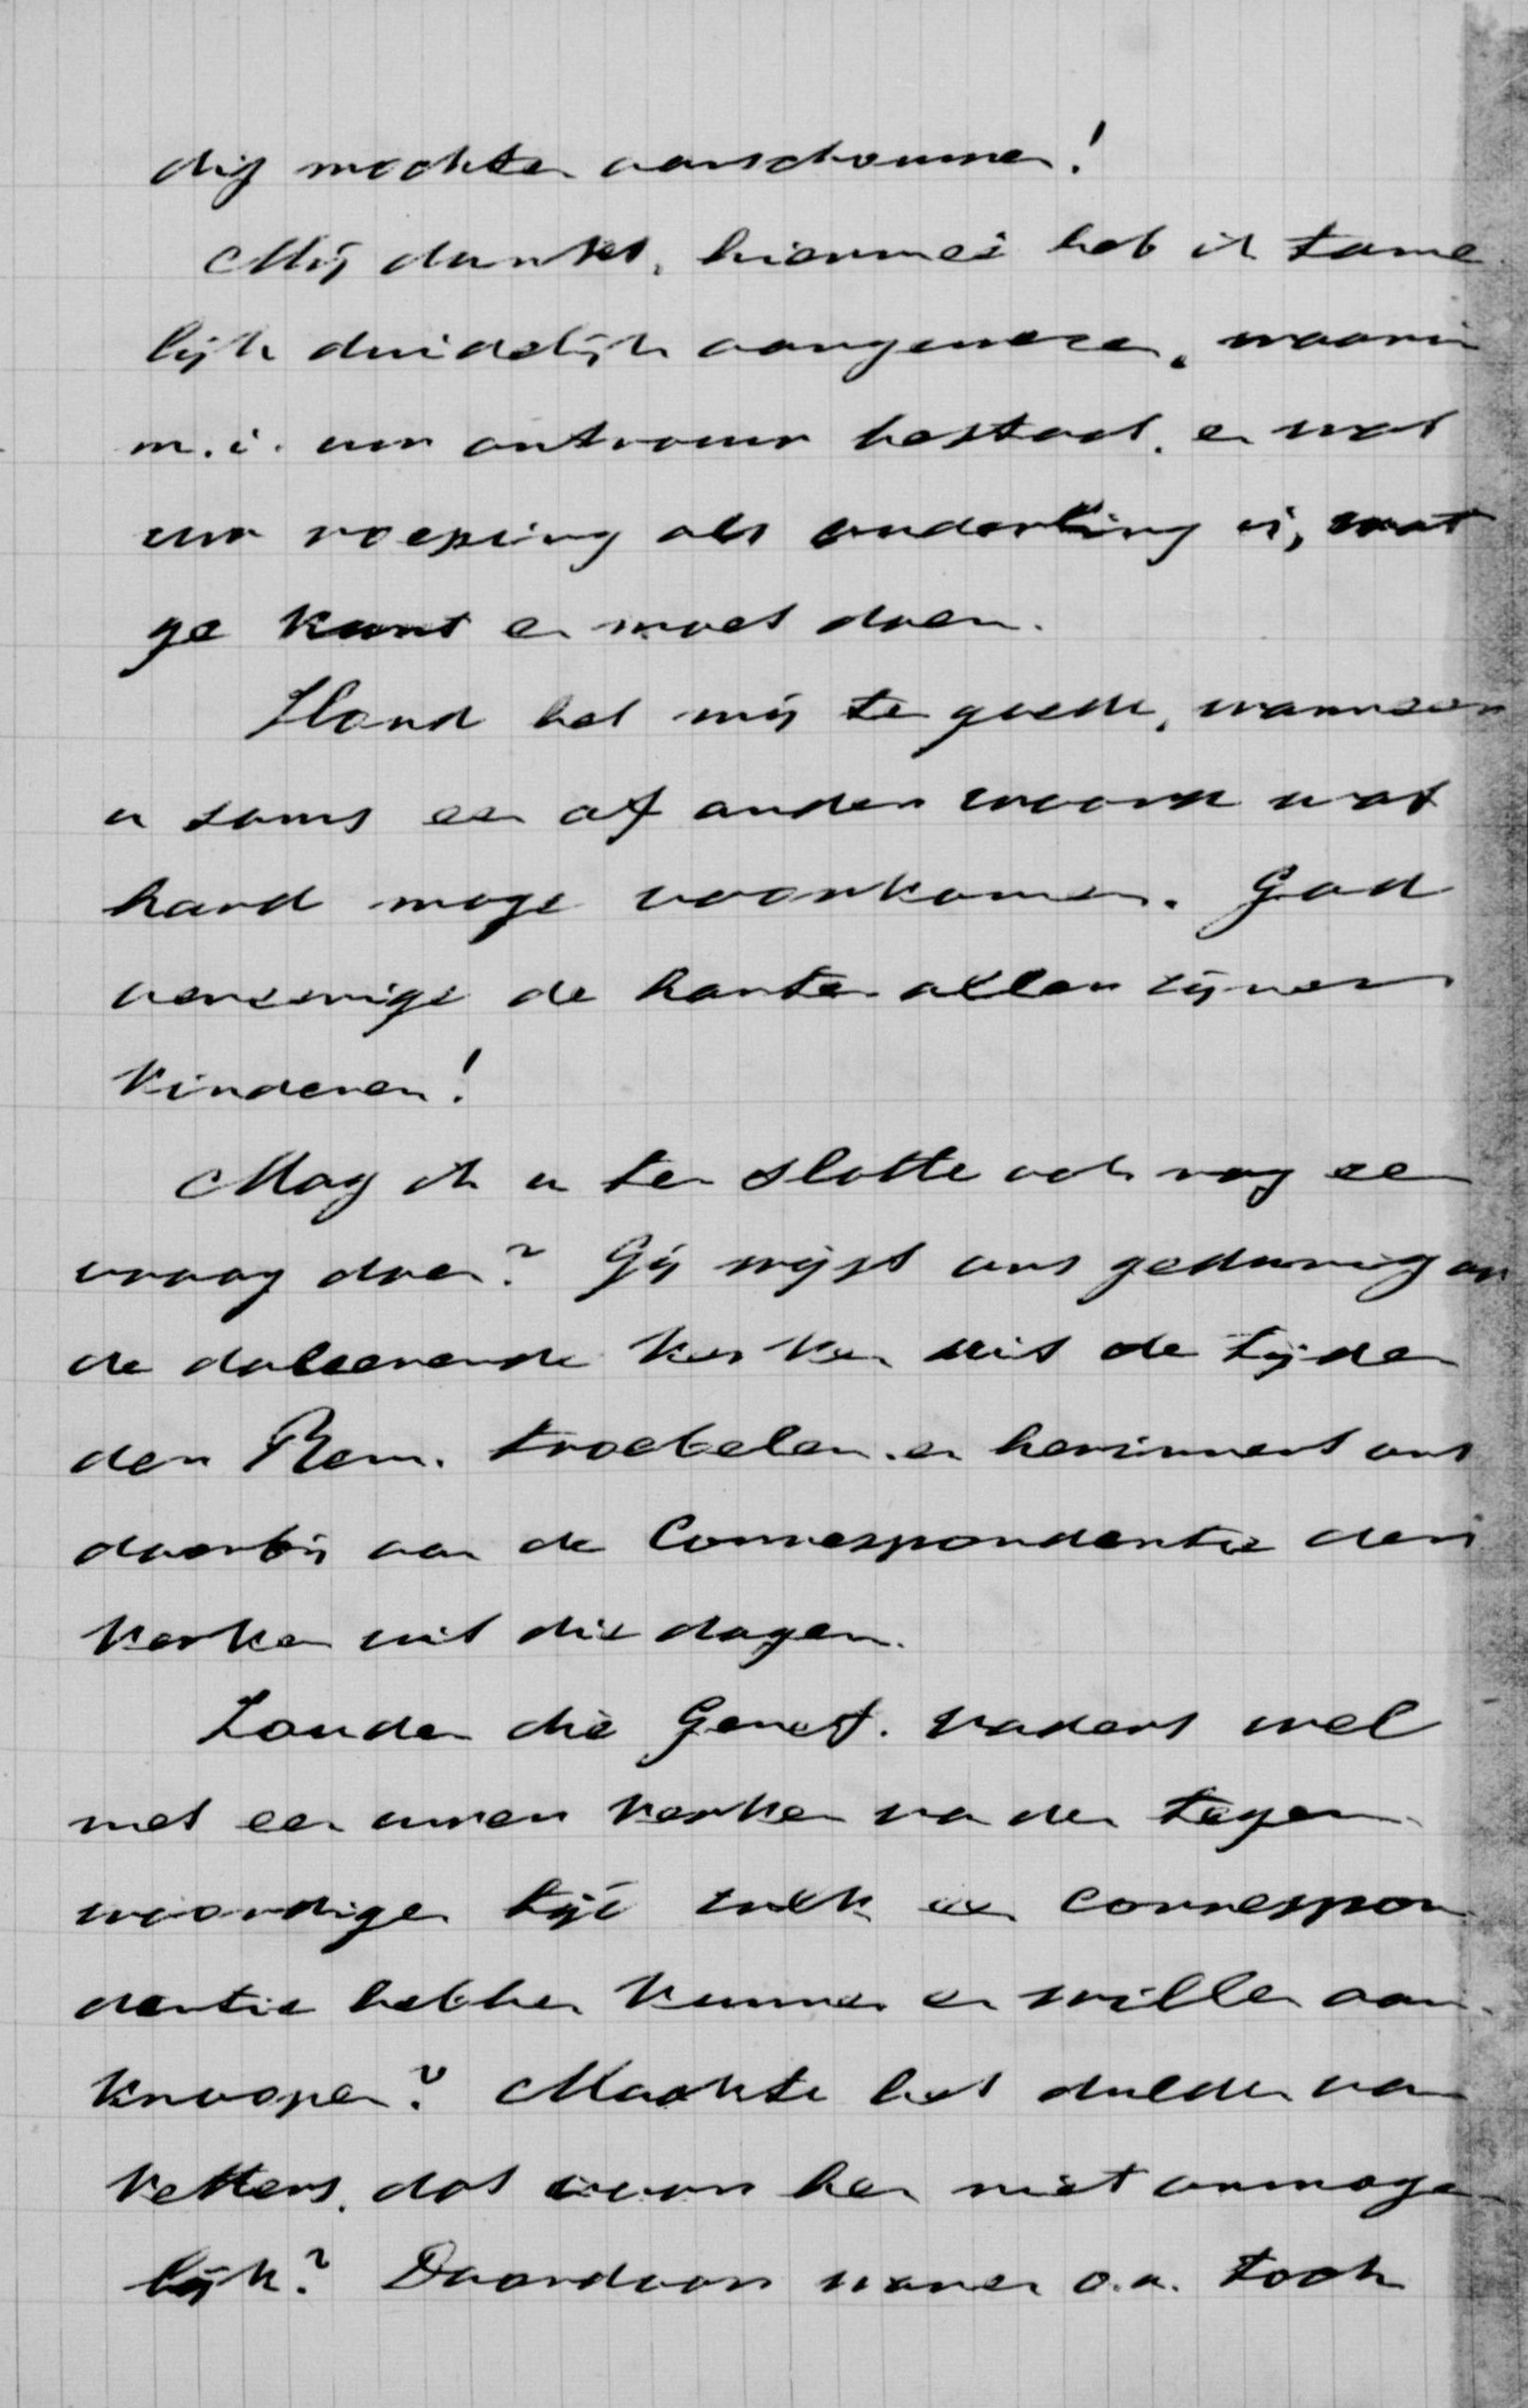 dig mochten aanschouwen!
Mij dunkt, hiermeê heb ik tame
lijk duidelijk aangewezen, waarin
m.i. uw ontrouw bestaat, en wat
uw roeping als ouderling is, wat
ge kunt en moet doen.
Houd het mij ten goede, wanneer
u soms een of ander woord wat
hard moge voorkomen. God
vereenige de harten aller zijner
kinderen!
Mag ik u ten slotte ook nog een
vraag doen? Gij wijst ons gedurig op
de doleerende kerken uit de tijden
der Rem. troebelen en herinnert ons
daarbij aan de Correspondentie der
kerken uit die dagen.
Zouden die Geref. vaders wel
met een uwer kerken van den tegen
woordigen tijd zulk een correspon
dentie hebben kunnen en willen aan-
knoopen? Maakte het dulden van
ketters, dat voor hen niet onmoge
lijk? Daardoor waren o.a. toch